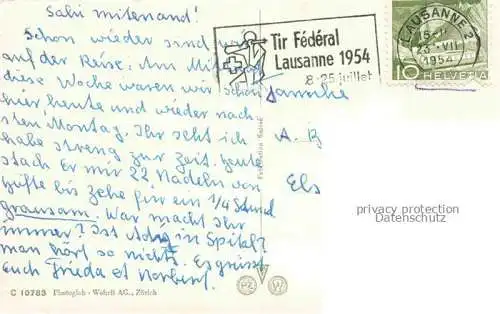 Sali mitenand!
Schon wieder sind wir
auf der Reise. Am Mittwoch
diese Woche waren wir schon
hier heute und wieder nach-
sten Montag. Ihr seht ich
habe streng zur Zeit. heute
stach Er mir 22 Nadeln von
Hüfte bis Zehe für ein 1/4 Stund
grausam. War macht Ihr
immer? Ist in Spital?
man hört so nichts. Es grüsst
Euch Frieda et Norbert.
C 10783 Photoglob - Wehrli AG., Zürich
Tir Fédéral
Lausanne 1954
8-25 juillet
LAUSANNE 2
23.-VII
1954
10 HELVETIA
Familie
A. B
Els
PZ W
privacy protection
Datenschutz